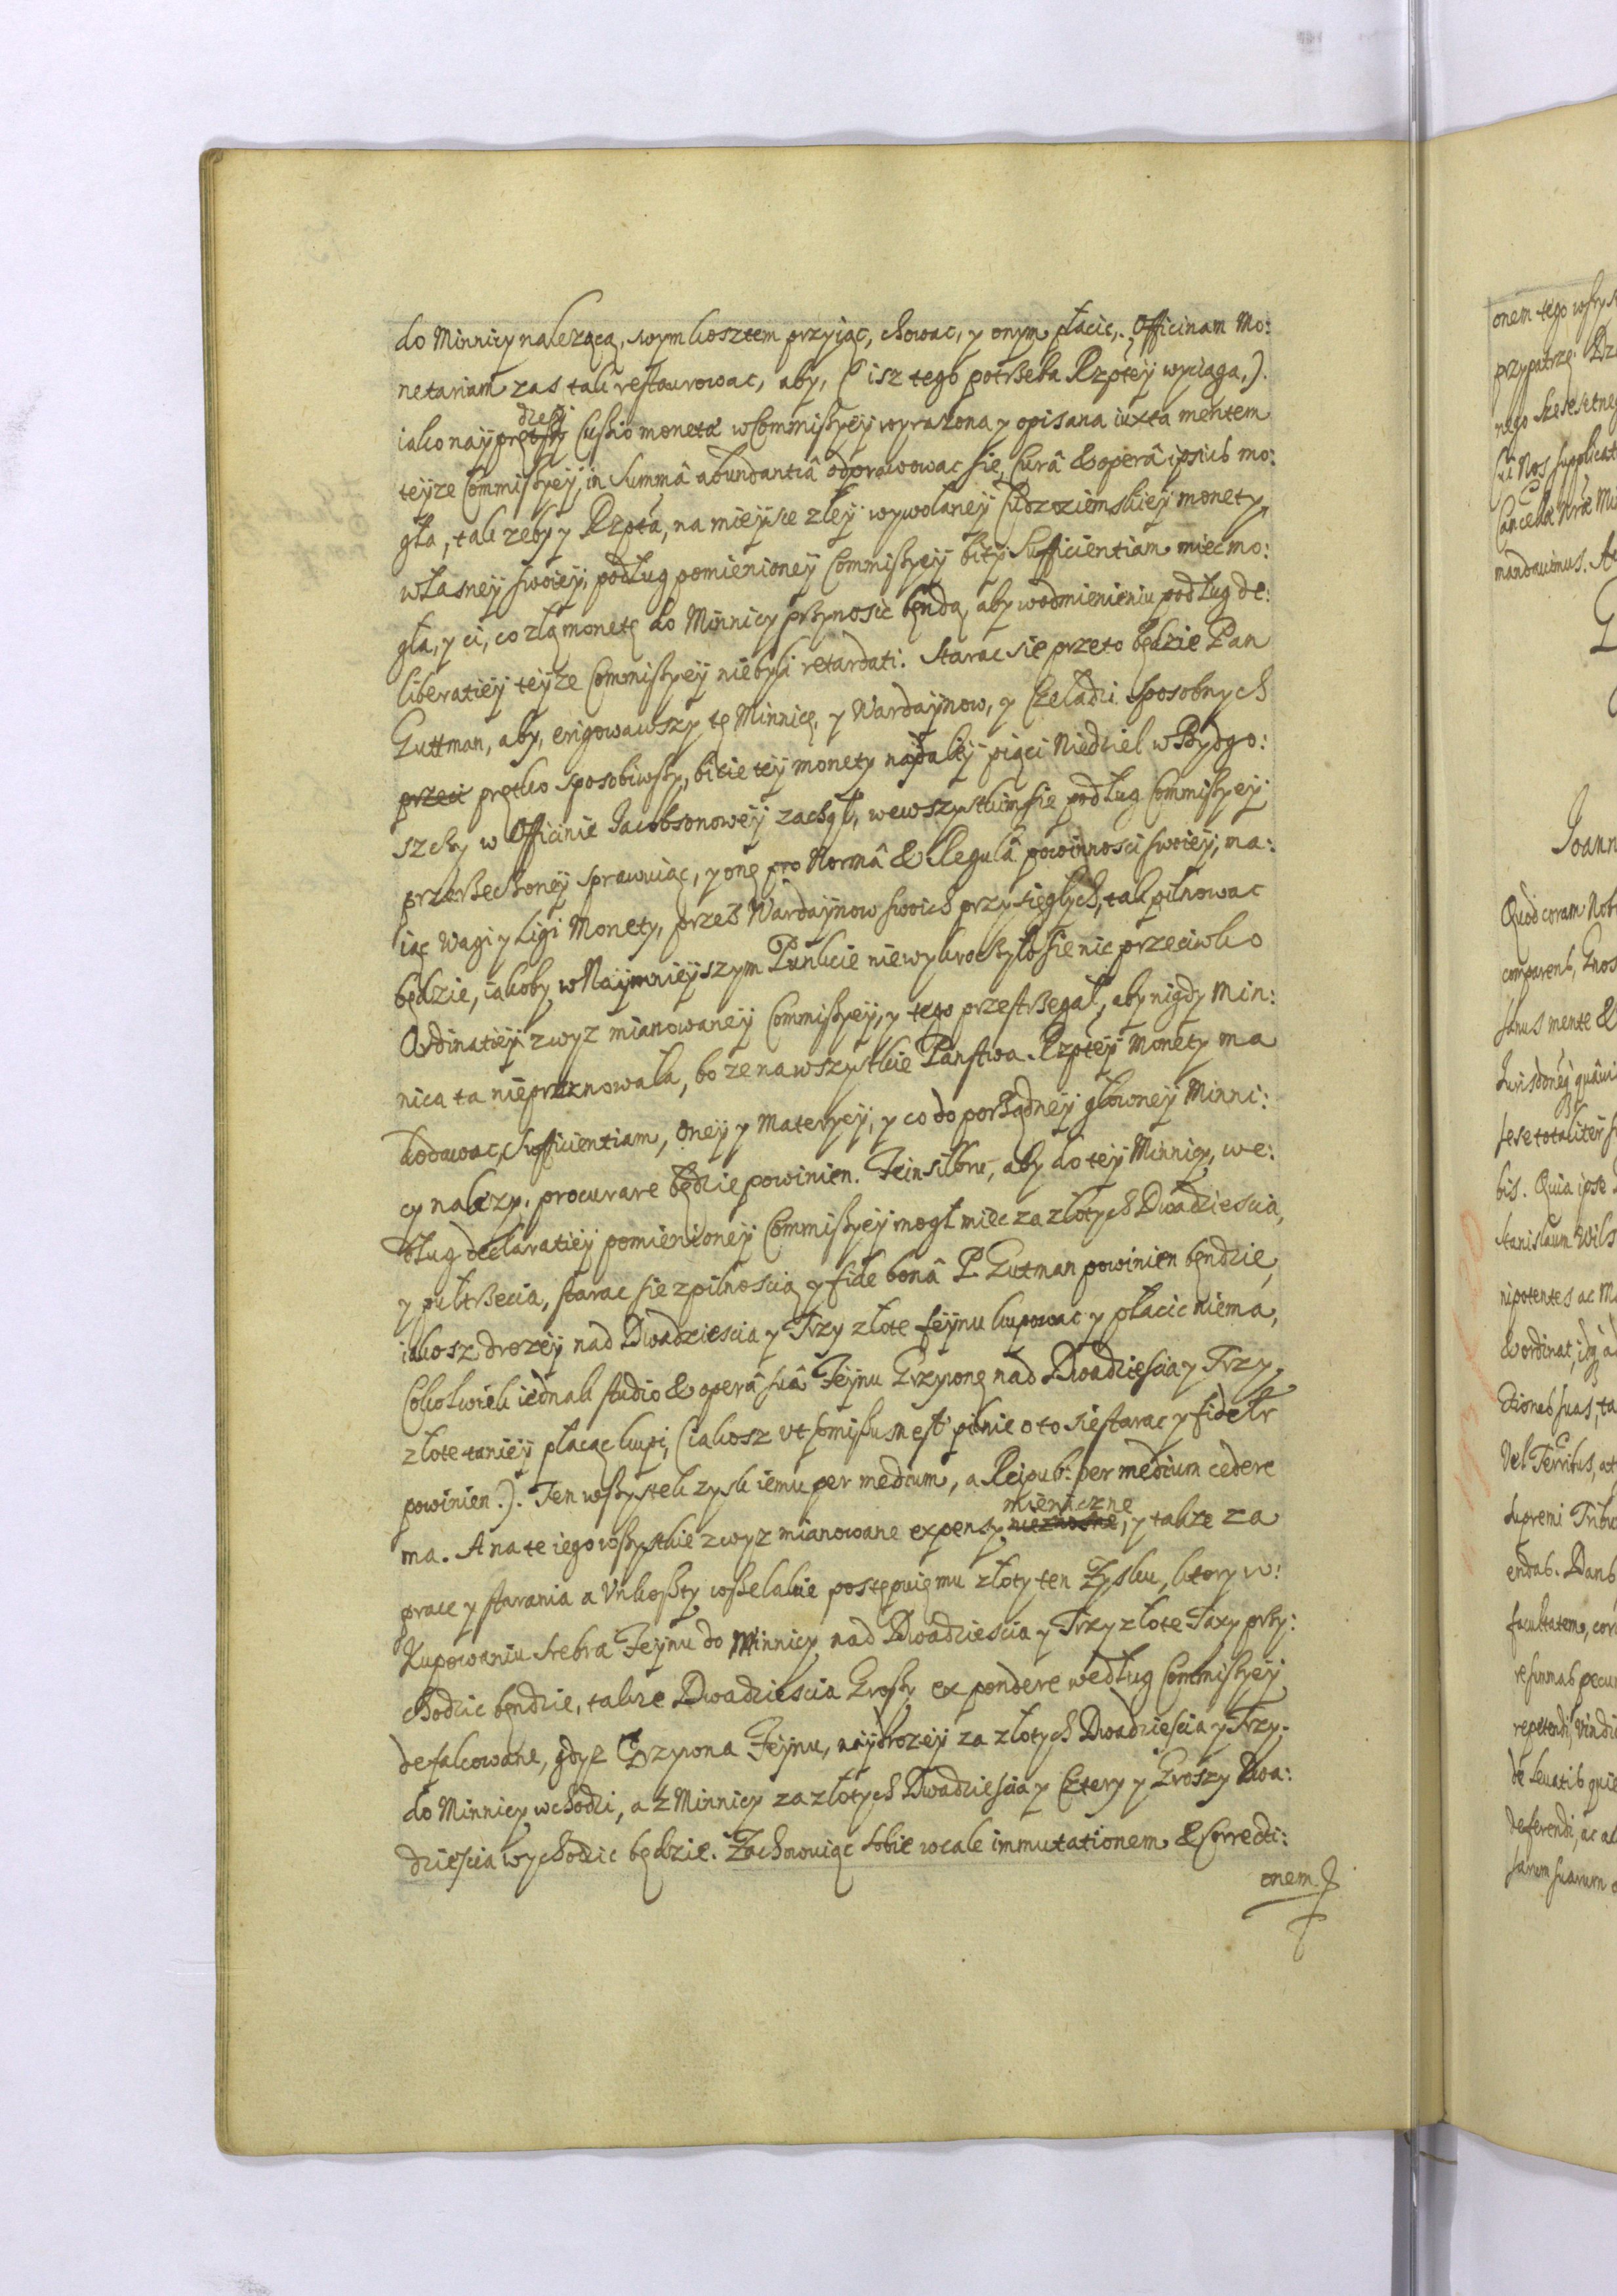 do Minnicy nalezącą, swym kosztem przyiąc, chowac, y onym płacic, Officinam Mo:
netariam zas tak restaurowac, aby, ( isz tego potrzeba Rzptey wyciąga, ).
iako nayprędzey Cussio moneta w Commissyey wyrazona y opisana iuxta mentem
teyze Commissyey, in summâ abundantiâ odprawowac sie, curâ & operâ ipsius mo:
gła, tak zeby y Rzpta, na mieysce zley wywołaney Cudzoziemskiey monety
własney swoiey, podług pomienioney Commissyey bitey sufficientiam miec mo:
gła, y ci, co złą monetę do Minnicy przynosic będą, aby w odmienieniu podług de:
liberatiey teyze Commissyey niebyli retardati. Starac sie przeto będzie Pan
Guttman, aby, erigowawszy tę Minnicę, y Wardaynow, y Czeladzi sposobnych
przeci prętko sposobiwszy, bicie tey monety naydaley pięci Niedziel w Bydgo:
szczy w Officinie Jacobsonowey zaczął, we wszystkim sie podług Commissyey
przerzeczoney sprawuiąc, y onę pro Normâ & Regulâ powinnosci swoiey, ma:
iąc Wagi y Ligi Monety, przez Wardaynow swoich przysięgłych, tak pilnowac
będzie, iakoby w Naymnieyszym Punkcie niewykroczyło sie nic przeciwko
Ordinatiey zwyz mianowaney Commissyey, y tego przestrzegał, aby nigdy Min:
nica ta nieproznowała, bo ze na wszystkie Panstwa Rzptey Monety ma
dodawac sufficientiam, oney y Materyey, y co do porządney głowney Minni:
cy nalezy, procurare będzie powinien. Feinsilbru, aby do tey Minnicy, we:
dług declaratiey pomienioney Commissyey mogł miec za złotych Dwadziescia,
y pułtrzecia, starac sie z pilnoscią y fide bonâ P. Gutman powinien będzie,
iakosz drozey nad Dwadziescia y Trzy złote feynu kupowac y płacic niema,
Cokolwiek iednak studio & operâ suâ Feynu Grzywnę nad Dwadziescia y Trzy
złote taniey płacąc kupi, (iakosz vt pmissum est pilnie o to sie starac y fidetr
powinien.). Ten wszystek zysk iemu per medium, a Reipub: per medium cedere
ma. A na te iego wszystkie zwyz mianowane expensy mienniczne, y takze za
prace y starania a Vnkoszty wszelakie postępuię mu złoty ten Zysku, ktory w:
Kupowaniu srebra Feynu do Minnicy nad Dwadziescia y Trzy złote Taxy przy:
chodzic będzie, takze Dwadziescia Groszy ex pondere według Commissyey
defalcowane, gdyz Grzywna Feynu, naydrozey za złotych Dwadziescia y Trzy
do Minnicy wchodzi, a z Minnicy za złotych Dwadziescia y Cztery y Groszy Dwa:
dziescia wychodzic będzie. Zachowuiąc sobie wcale immutationem & Correcti:
onem